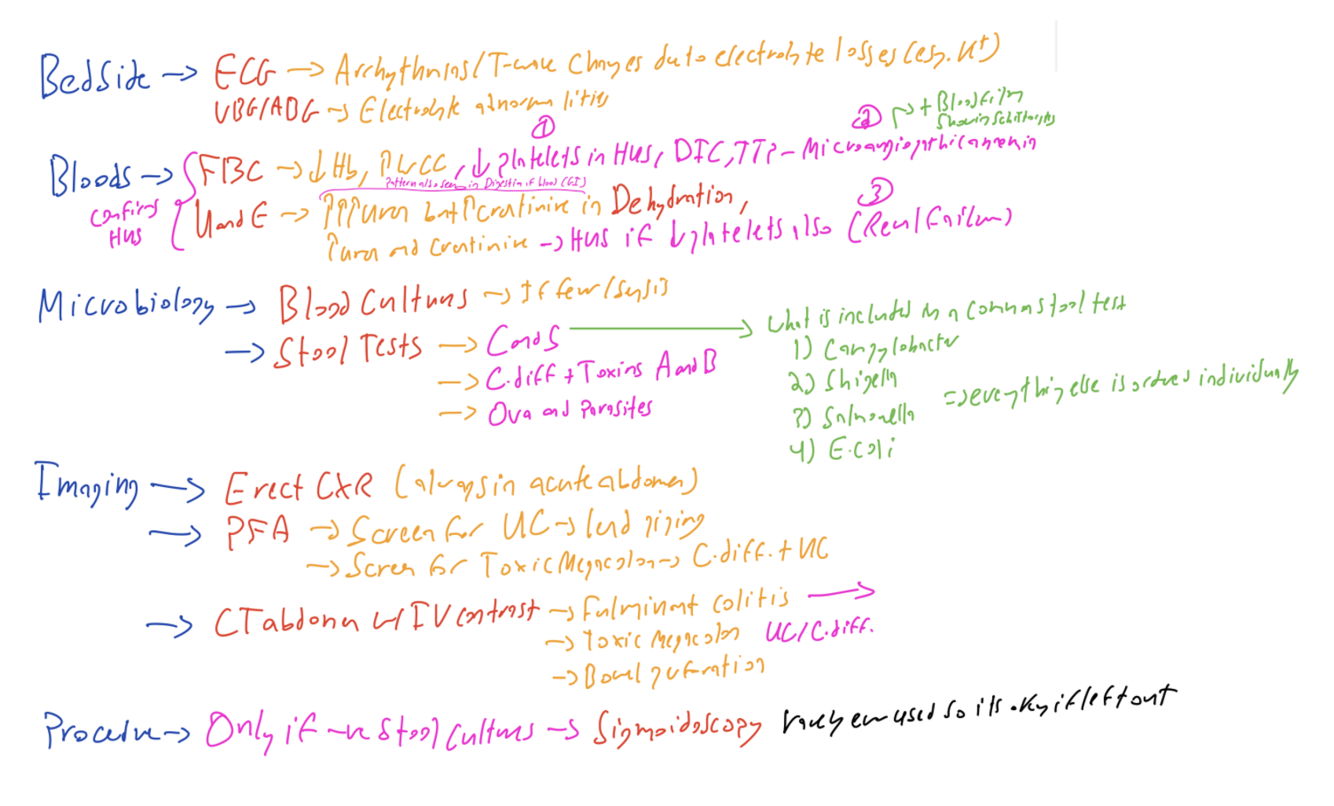 Bedside → ECG → Arrhythmias/T-wave changes due to electrolyte losses (esp. K+)
VBG/ABG → Electrolyte abnormalities
① ② → + Blood film showing schistocytes
Bloods → FBC → ↓Hb, ↑WCC, ↓platelets in HUS, DIC, TTP - Microangiopathic anaemia
Pattern also seen in Digestion of blood (GI)
confirms HUS
U and E → ↑↑↑urea but ↑creatinine in Dehydration, ③
↑urea and creatinine → HUS if ↓platelets also (Renal failure)
Microbiology → Blood Cultures → If fever/sepsis
→ Stool Tests → C and S → What is included in a common stool test
→ C.diff + Toxins A and B
→ Ova and Parasites
1) Campylobacter
2) Shigella
3) Salmonella
4) E.coli
⇒ everything else is ordered individually
Imaging → Erect CXR (always in acute abdomen)
→ PFA → Screen for UC → lead piping
→ Screen for Toxic Megacolon → C.diff. + UC
→ CT abdomen w/ IV contrast → Fulminant colitis →
→ Toxic megacolon UC/C.diff.
→ Bowel perforation
Procedure → Only if -ve stool cultures → Sigmoidoscopy rarely ever used so its okay if left out